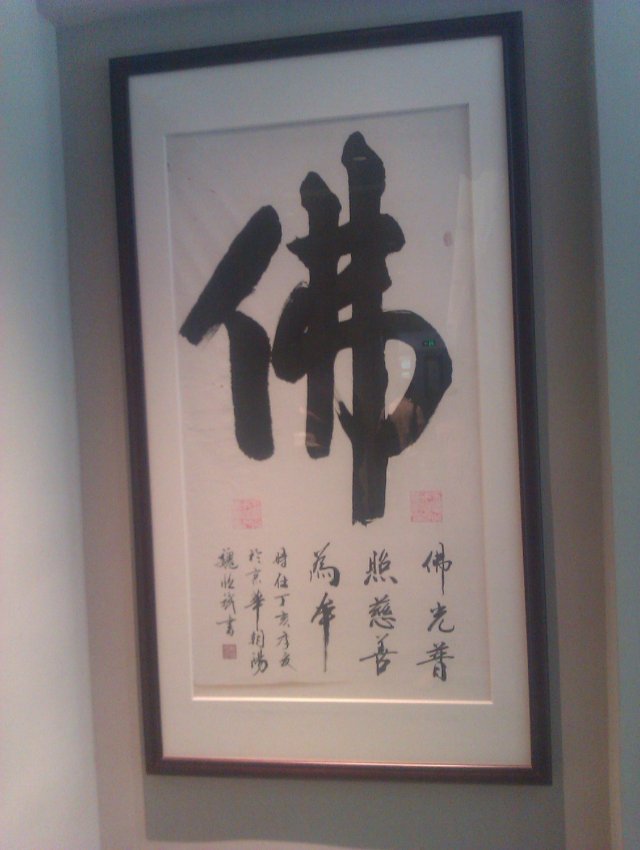 佛
佛光普
照慈善
為本
時在丁亥孟夏
於京華朝陽
書